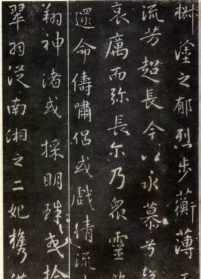 椒塗之郁烈步蘅薄
流芳超長吟以永慕兮
哀厲而弥長尔乃衆靈
遝命儔嘯侶或戲清流
翔神渚或採明珠或拾
翠羽從南湘之二妃攜